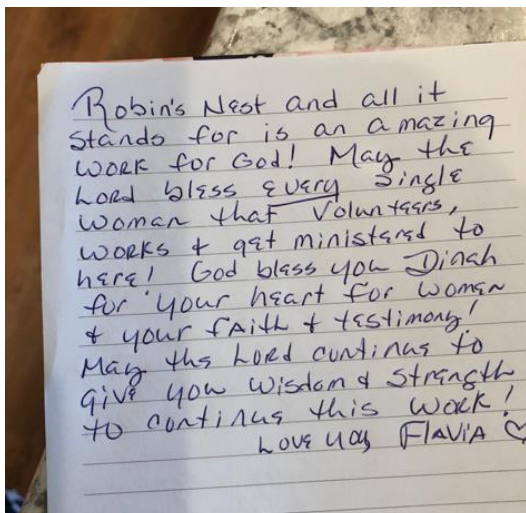 Robin's Nest and all it
stands for is an amazing
work for God! May the
Lord bless every single
woman that volunteers,
works & get ministered to
here! God bless you Dinah
for your heart for women
& your faith & testimony!
May the Lord continue to
give you wisdom & strength
to continue this work!
Love you Flavia ♡